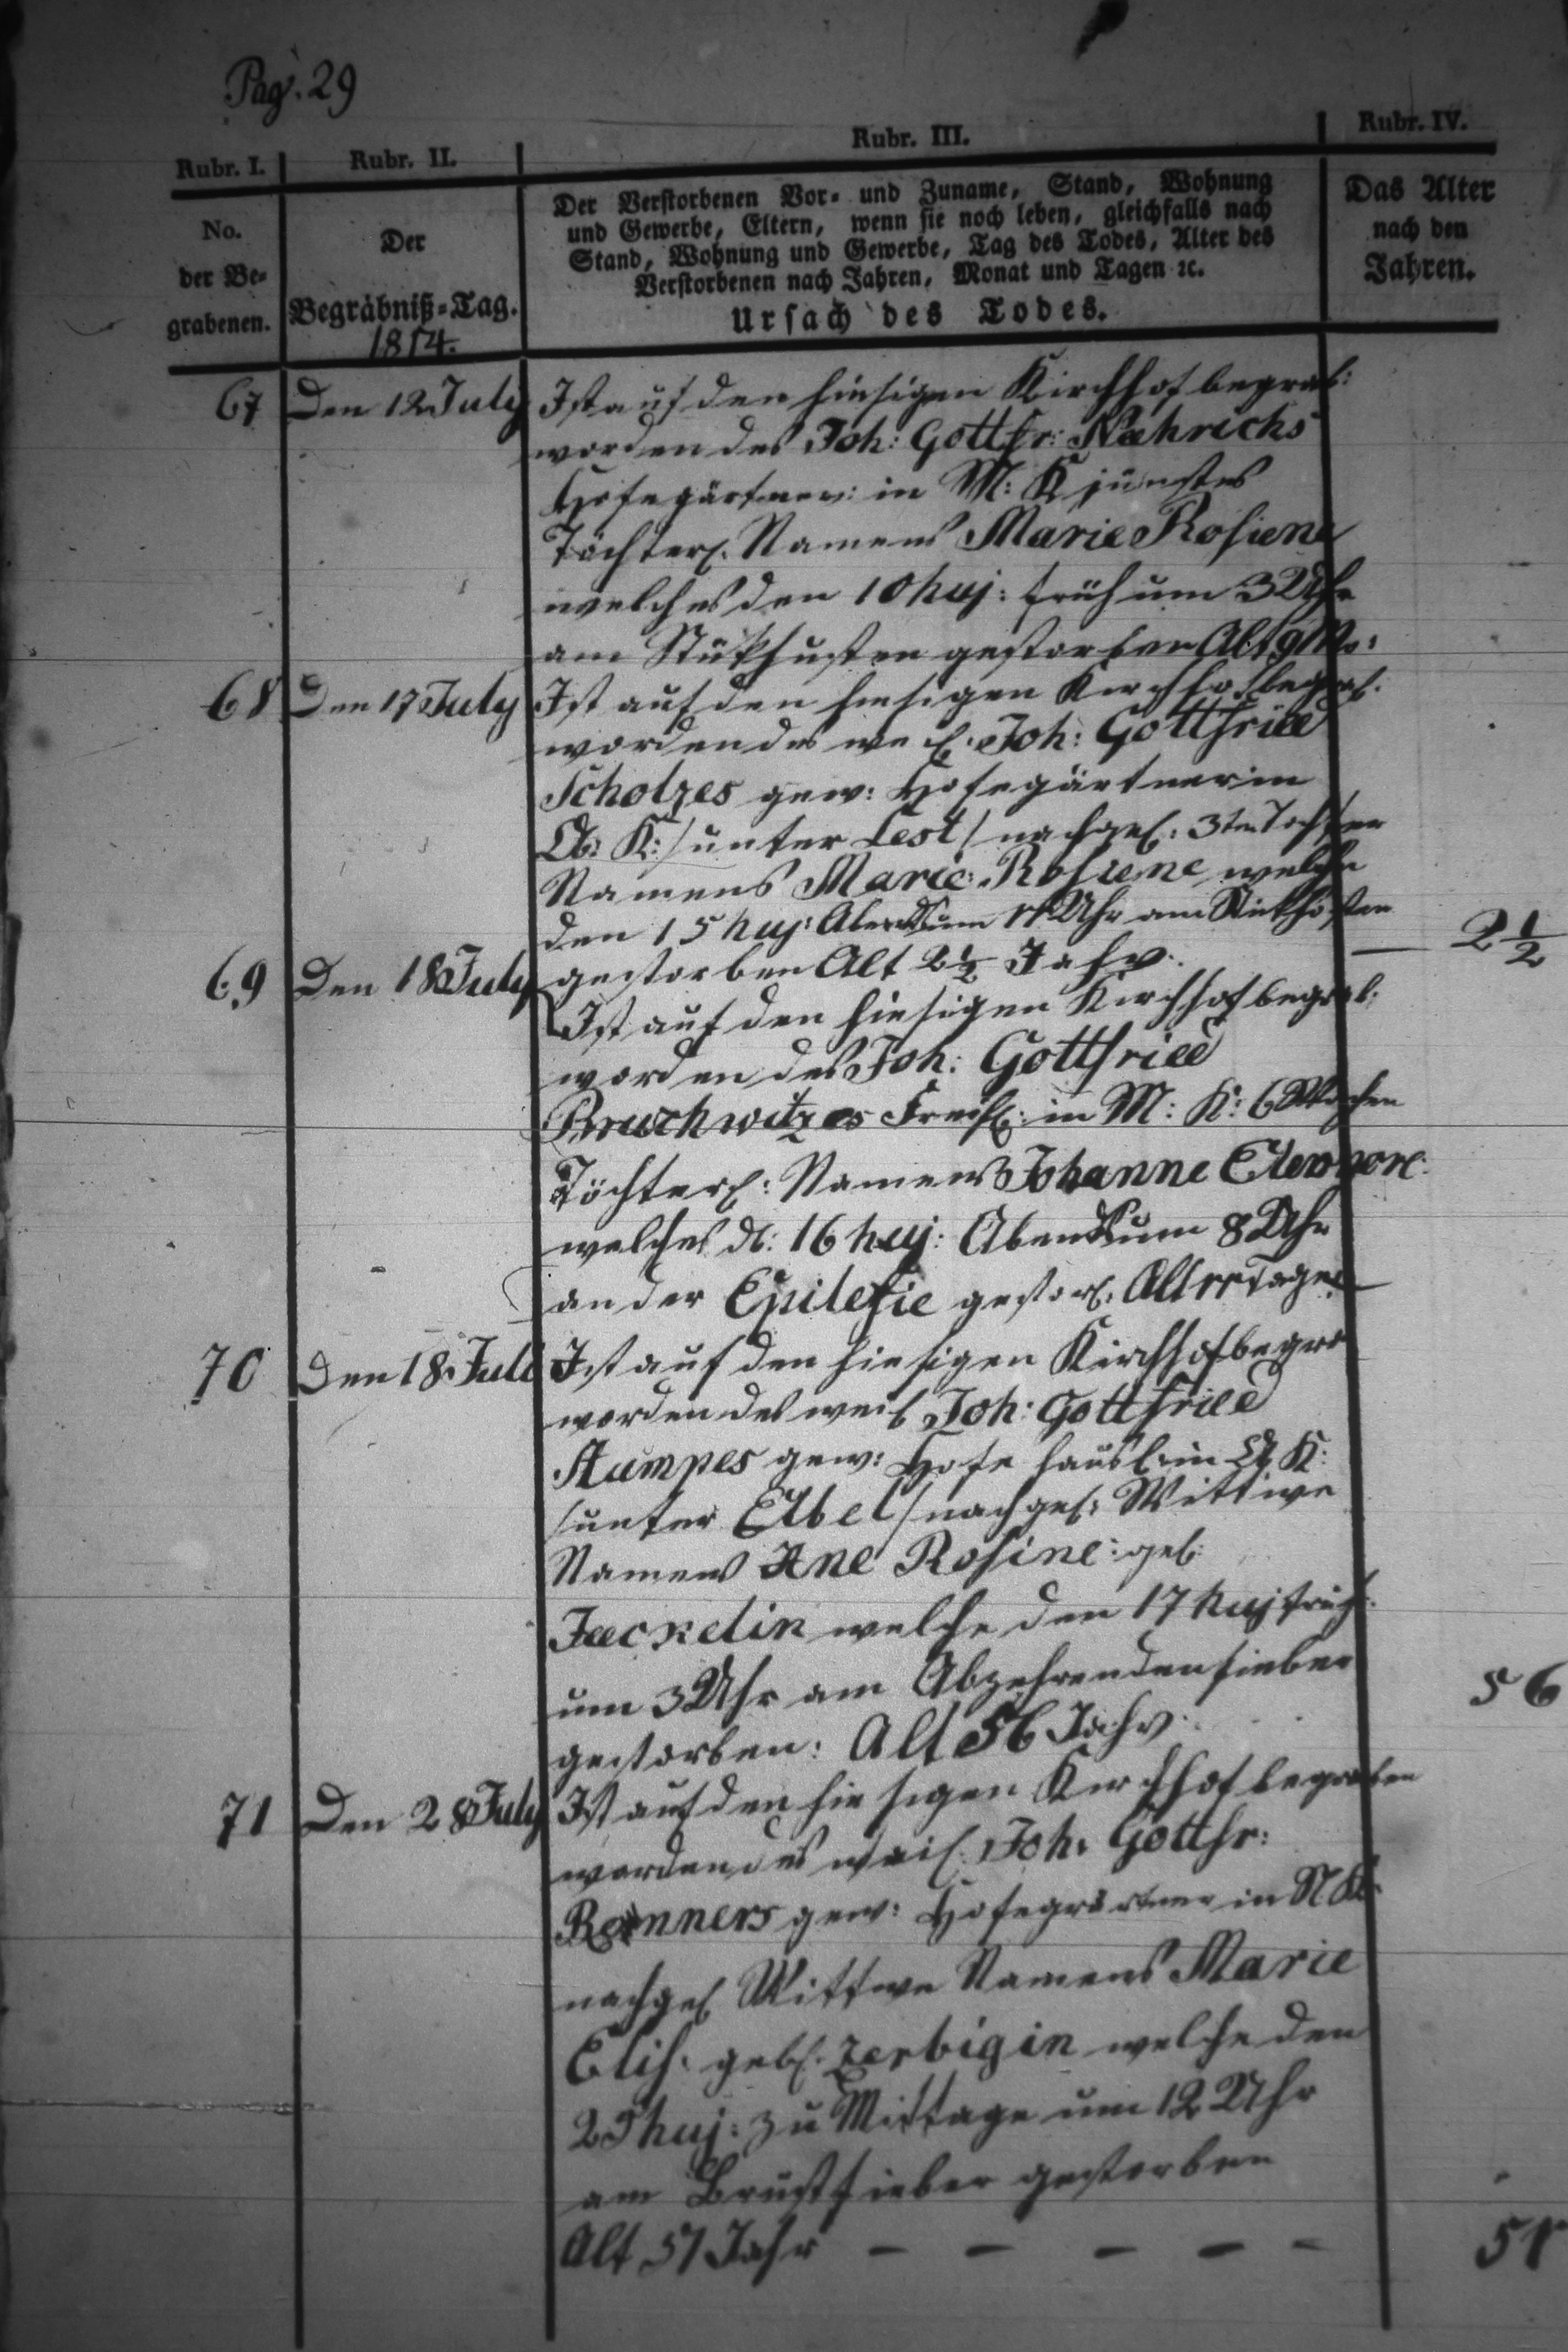 Pag. 29
Rubr. I. Rubr. II. Rubr. III. Rubr. IV.
No.
der Be-
grabenen.
Der
Begräbniß-Tag.
1814.
Der Verstorbenen Vor- und Zuname, Stand, Wohnung
und Gewerbe, Eltern, wenn sie noch leben, gleichfalls nach
Stand, Wohnung und Gewerbe, Tag des Todes, Alter des
Verstorbenen nach Jahren, Monat und Tagen ꝛc.
Ursach des Todes.
Das Alter
nach den
Jahren.
67 Den 12 July Ist auf den hiesigen Kirchhof begrab:
worden des Joh: Gottfr: Næhrichs
Hofegärtner: in M: K jünstes
Töchterl. Namens Marie Rosiene
welches den 10 huj: früh um 3 Uhr
am Stükhusten gestorben Alt 9 Mo:
68 Den 17 July Ist auf den hiesigen Kirchhof begrab.
worden des weil. Joh: Gottfried
Scholzes gew: Hofegärtner in
K: /unter Lest/ nachgel: 3te Tochter
Namens Marie Rosiene welche
den 15 huj: Abends um 11 Uhr am Stikhusten
gestorben Alt 2½ Jahr. — 2½
69 Den 18 July Ist auf den hiesigen Kirchhof begrab:
worden des Joh: Gottfried
Bruchwitzes Freih: in M: K: 6 Wochen
Töchterl: Namens Johanne Eleonore
welches d: 16 huj: Abends um 8 Uhr
an der Epilefie gestorb: Alt Tage
70 Den 18 Juli Ist auf den hiesigen Kirchhof begra
worden des weil Joh: Gottfried
Stumpes gew: Hofe häusl: in K:
/unter Eibel/ nachgel: Wittwe
Namens Ane Rosine: geb:
Jæckelin welche den 17 huj früh
um 3 Uhr am Abzehrenden fieber
gestorben: Alt 56 Jahr. 56
71 Den 28 July Ist auf den hiesigen Kirchhof begraben
worden des weil. Joh: Gottfr:
Renners gew: Hofegärtner in N K:
nachgel Wittwe Namens Marie
Elis: geb. Zerbigin welche den
25 huj: zu Mittage um 12 Uhr
am Brustfieber gestorben
Alt 51 Jahr — — — — — 51